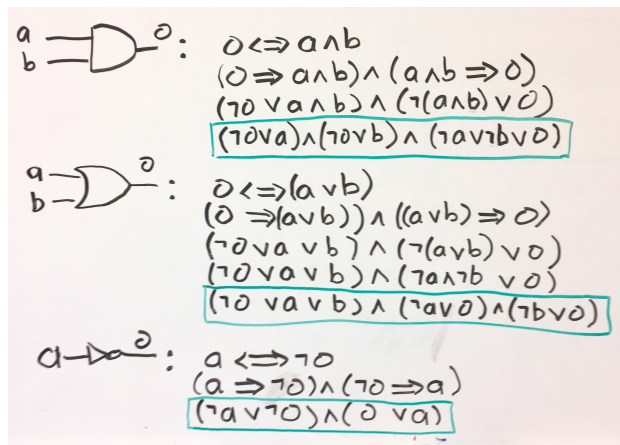 a
b
o : o <=> a∧b
(o => a∧b)∧(a∧b => o)
(¬o ∨ a∧b)∧(¬(a∧b)∨o)
(¬o∨a)∧(¬o∨b)∧(¬a∨¬b∨o)
a
b
o : o <=> (a∨b)
(o =>(a∨b))∧((a∨b) => o)
(¬o∨a ∨ b)∧(¬(a∨b) ∨ o)
(¬o ∨ a ∨ b)∧(¬a∧¬b ∨ o)
(¬o ∨ a ∨ b)∧(¬a∨o)∧(¬b∨o)
a o : a <=> ¬o
(a => ¬o)∧(¬o => a)
(¬a∨¬o)∧(o ∨a)